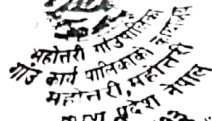 महोत्तरी गाउँपालिका
गाउँ कार्य पालिकाको कार्यालय
महोत्तरी, महोत्तरी
प्रदेश नेपाल